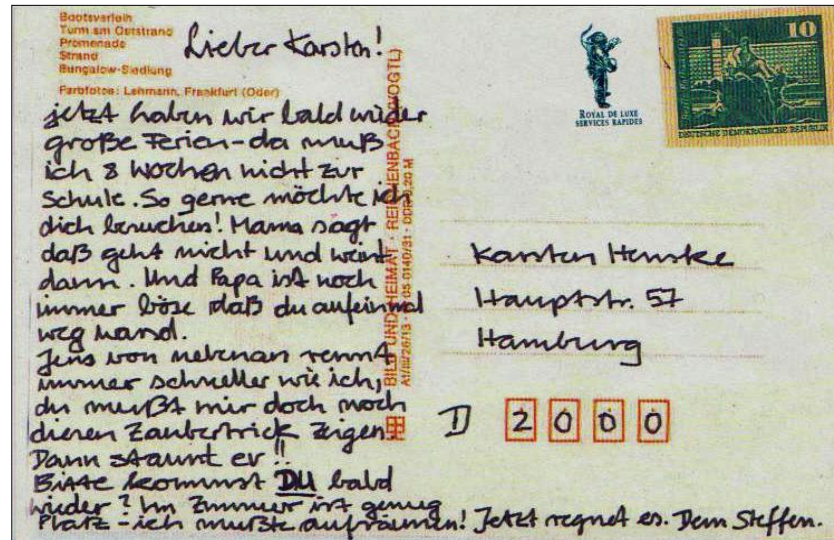 Bootsverleih
Turm am Oststrand
Promenade
Strand
Bungalow-Siedlung
Farbfotos: Lehmann, Frankfurt (Oder)
Lieber Karsten!
jetzt haben wir bald wieder
große Ferien - da muß
ich 8 Wochen nicht zur
Schule. So gerne möchte ich
dich besuchen! Mama sagt
daß geht nicht und weint
dann. Und Papa ist noch
immer böse daß du aufeinmal
weg warst.
Jens von nebenan rennt
immer schneller wie ich,
du mußt mir doch noch
diesen Zaubertrick zeigen.
Dann staunt er!!
Bitte kommst DU bald
wieder? Im Zimmer ist genug
Platz - ich mußte aufräumen! Jetzt regnet es. Dein Steffen.
BILD UND HEIMAT · REICHENBACH (VOGTL)
ROYAL DE LUXE
SERVICES RAPIDES
10
DEUTSCHE DEMOKRATISCHE REPUBLIK
Karsten Henske
Hauptstr. 57
Hamburg
D 2000